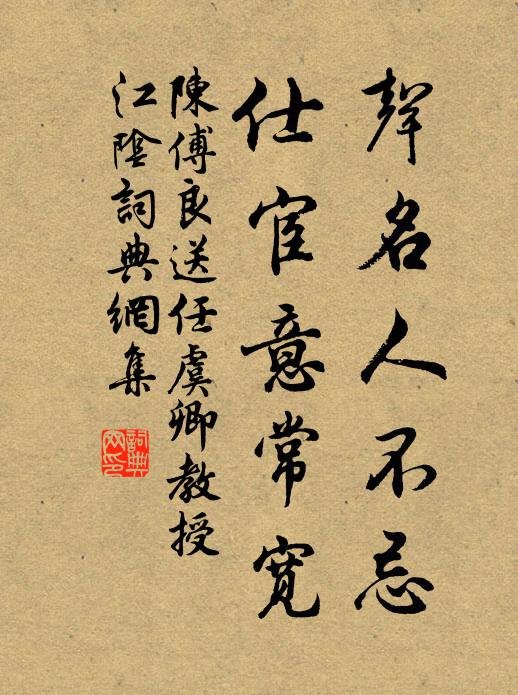 聲名人不忌
仕宦意常寬
陳傅良送任虞卿教授
江陰詞典網集
詞典網印